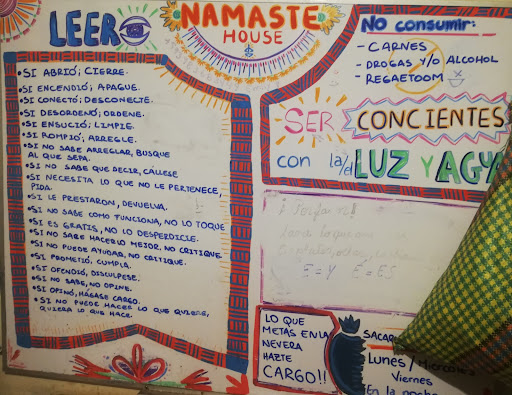 LEER
•SI ABRIÓ; CIERRE.
•SI ENCENDIÓ; APAGUE.
•SI CONECTÓ; DESCONECTE.
•SI DESORDENÓ; ORDENE.
•SI ENSUCIÓ; LIMPIE.
•SI ROMPIÓ; ARREGLE.
•SI NO SABE ARREGLAR, BUSQUE
AL QUE SEPA.
•SI NO SABE QUE DECIR, CÁLLESE
•SI NECESITA LO QUE NO LE PERTENECE,
PIDA.
•SI LE PRESTARON, DEVUELVA.
•SI NO SABE COMO FUNCIONA, NO LO TOQUE
•SI ES GRATIS, NO LO DESPERDICIE.
•SI NO SABE HACERLO MEJOR, NO CRITIQUE
•SI NO PUEDE AYUDAR, NO CRITIQUE.
•SI PROMETIÓ, CUMPLA.
•SI OFENDIÓ, DISCULPESE.
•SI NO SABE, NO OPINE.
•SI OPINÓ, HÁGASE CARGO.
•SI NO PUEDE HACES LO QUE QUIERE,
QUIERA LO QUE HACE.
NAMASTE
HOUSE
No consumir:
- CARNES
- DROGAS Y/O ALCOHOL
- REGAETOOM
SER CONCIENTES
con la/el LUZ Y AGUA
E=Y E=ES
LO QUE
METÁS EN LA
NEVERA
HAZTE
CARGO!!
SACAR
LUNES / Miercoles
Viernes
En la noche